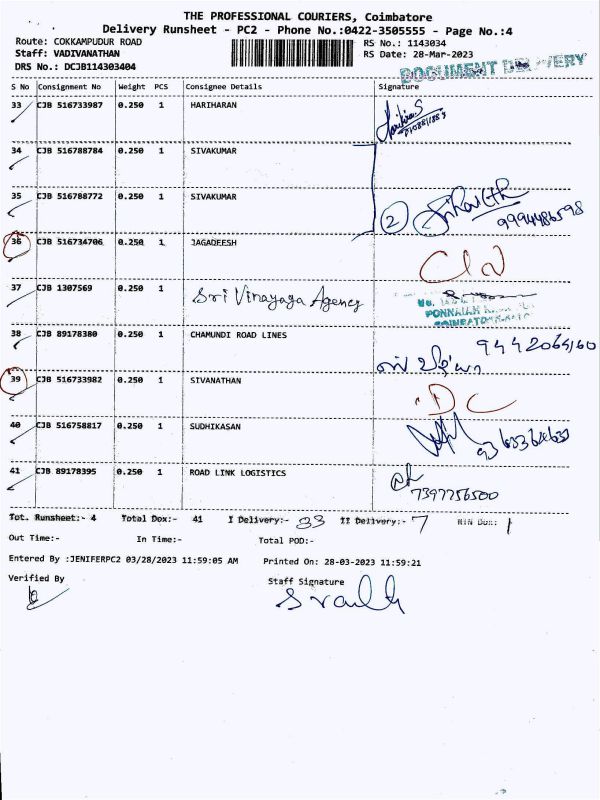 THE PROFESSIONAL COURIERS, Coimbatore
Delivery Runsheet - PC2 - Phone No.:0422-3505555 - Page No.:4
Route: COKKAMPUDUR ROAD RS No.: 1143034
Staff: VADIVANATHAN RS Date: 28-Mar-2023
DRS No.: DCJB114303404 DOCUMENT DELIVERY
S No Consignment No Weight PCS Consignee Details Signature
33 CJB 516733987 0.250 1 HARIHARAN
34 CJB 516788784 0.250 1 SIVAKUMAR
35 CJB 516788772 0.250 1 SIVAKUMAR
2 9994486598
36 CJB 516734706 0.250 1 JAGADEESH
37 CJB 1307569 0.250 1 Sri Vinayaga Agency
PONNAIAH
COIMBATORE
38 CJB 89178380 0.250 1 CHAMUNDI ROAD LINES
39 CJB 516733982 0.250 1 SIVANATHAN DC
40 CJB 516758817 0.250 1 SUDHIKASAN
41 CJB 89178395 0.250 1 ROAD LINK LOGISTICS
7397756500
Tot. Runsheet:- 4 Total Dox:- 41 I Delivery:- 33 II Delivery:- 7 NIN Dox: 1
Out Time:- In Time:- Total POD:-
Entered By :JENIFERPC2 03/28/2023 11:59:05 AM Printed On: 28-03-2023 11:59:21
Verified By Staff Signature